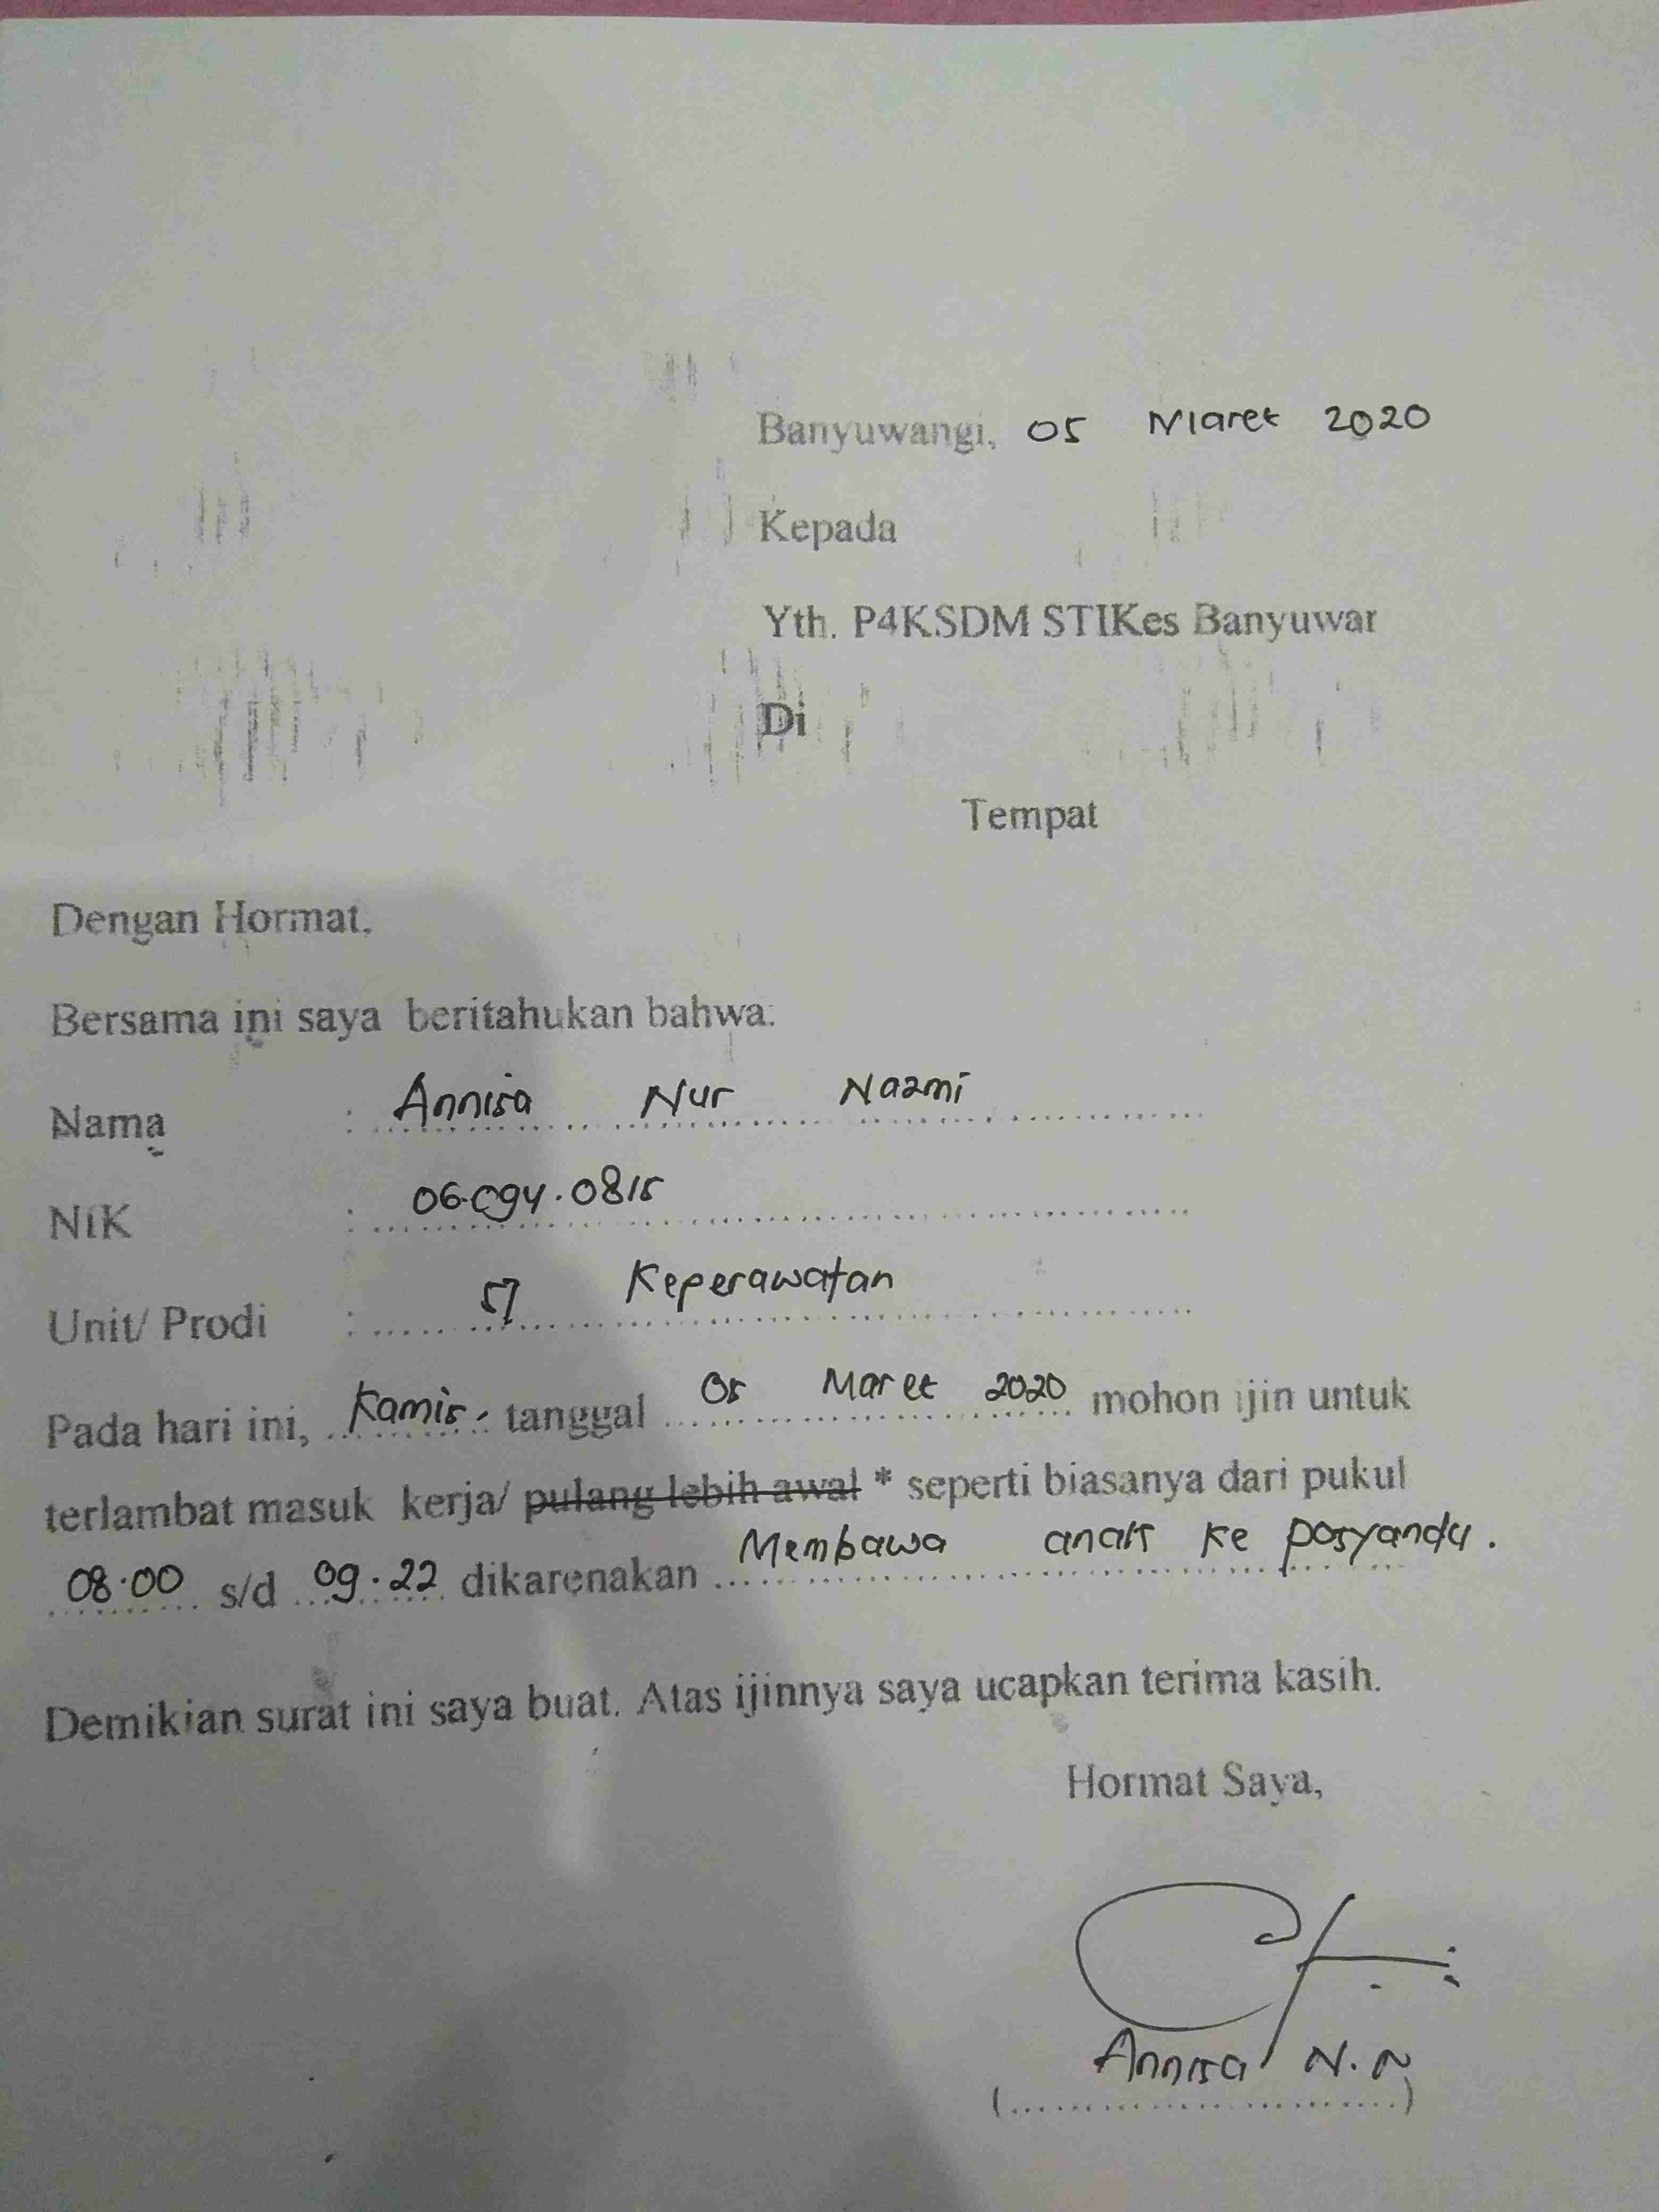 Banyuwangi, 05 Maret 2020
Kepada
Yth. P4KSDM STIKes Banyuwar
Di
Tempat
Dengan Hormat,
Bersama ini saya beritahukan bahwa:
Nama : Annisa Nur Nazmi
NIK : 06.094.0815
Unit/ Prodi : S1 Keperawatan
Pada hari ini, Kamis, tanggal 05 Maret 2020 mohon ijin untuk
terlambat masuk kerja/ pulang lebih awal * seperti biasanya dari pukul
08.00 s/d 09.22 dikarenakan Membawa anak ke posyandu.
Demikian surat ini saya buat. Atas ijinnya saya ucapkan terima kasih.
Hormat Saya,
Annisa N.N
(........................)